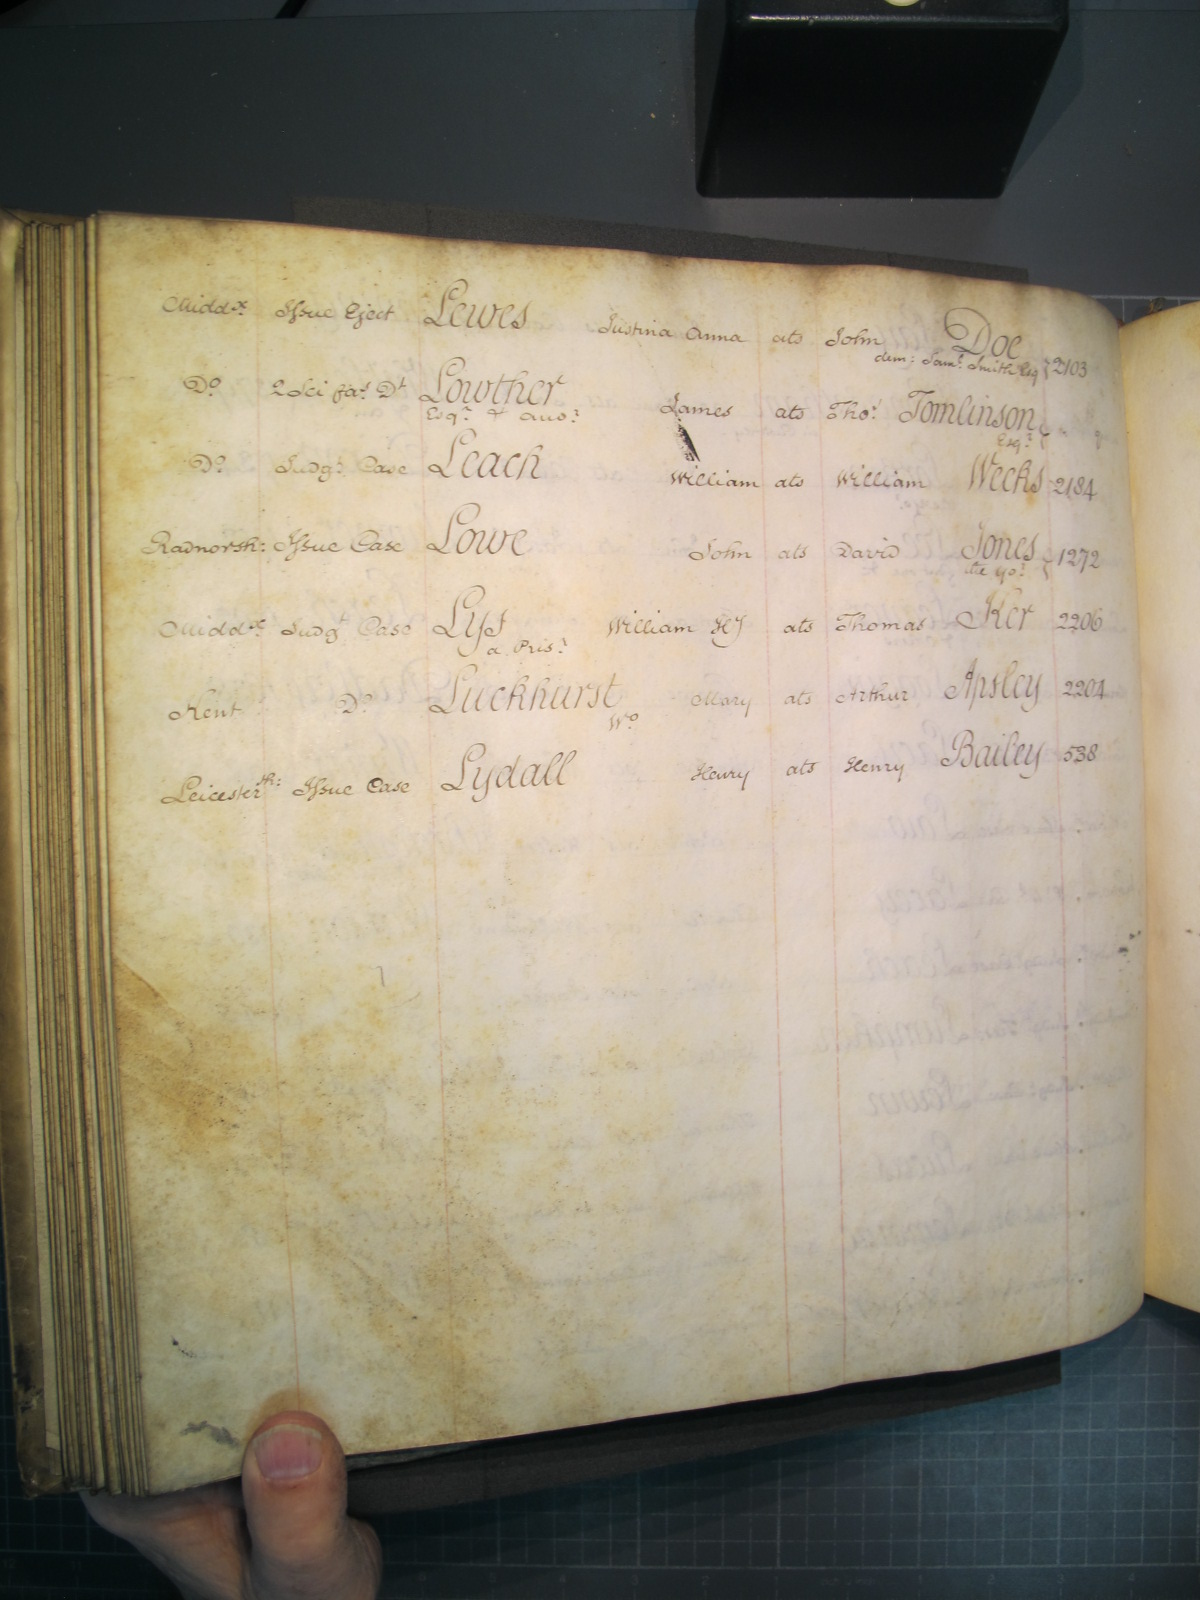 Midd.x Issue Eject Lewes Justina Anna ats John Doe 2103
dem: Sam.l Smith Esq
D.o 2 Sci fa.s D.t Lowther James ats Tho.s Tomlinson
Esq.r & ano.r Esq.r
D.o Judg.t Case Leach William ats William Weeks 2184
Radnorsh: Issue Case Lowe John ats David Jones 1272
the yo.r
Midd.x Judg.t Case Lys William Hy ats Thomas Ker 2206
a Pris.r
Kent D.o Luckhurst Mary ats Arthur Apsley 2204
W.o
Leicestersh: Issue Case Lydall Henry ats Henry Bailey 538